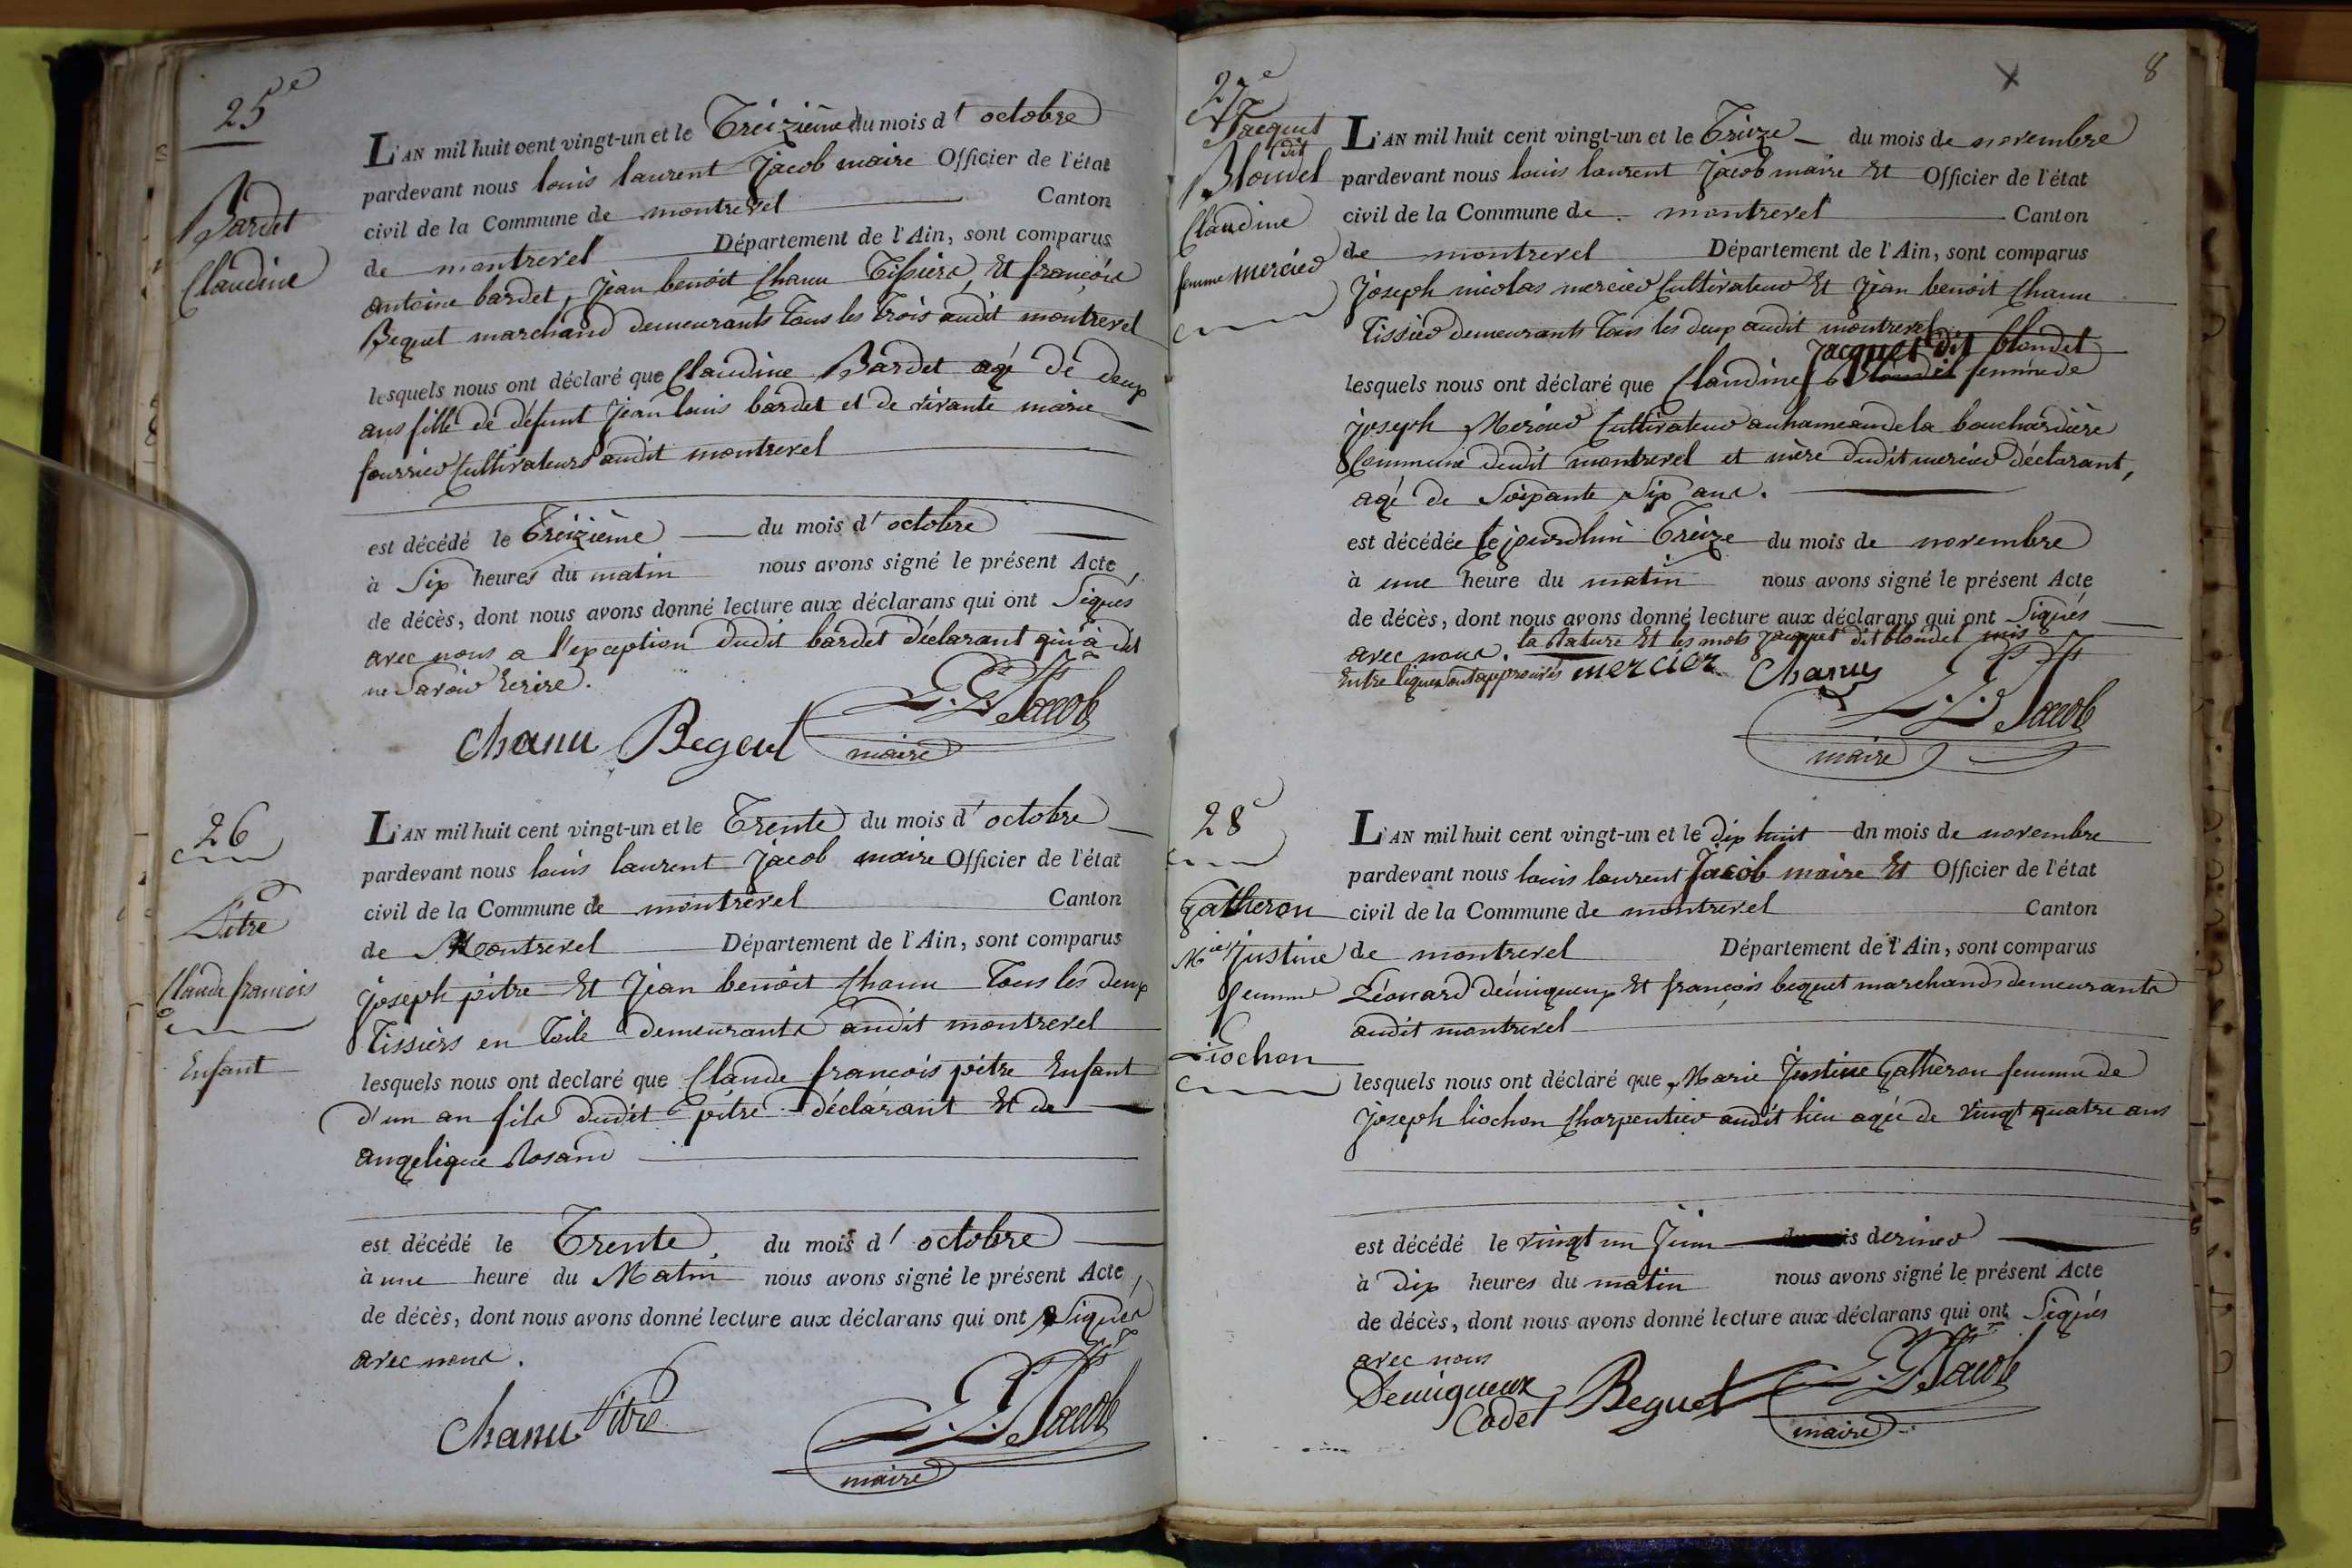 25e
Bardet
Claudine
L'AN mil huit cent vingt-un et le Treizième du mois d'octobre
pardevant nous louis laurent Jacob maire Officier de l'état
civil de la Commune de montrevel Canton
de montrevel Département de l'Ain, sont comparus
antoine bardet, Jean benoit Chanu Tissiers, Et françois
Bequet marchand demeurants Tous les Trois audit montrevel
lesquels nous ont déclaré que Claudine Bardet agé de deux
ans fille de défunt jean louis bardet et de vivante marie
fourrier Cultivateurs audit montrevel
est décédé le Treizième du mois d'octobre
à Six heures du matin nous avons signé le présent Acte
de décès, dont nous avons donné lecture aux déclarans qui ont Signés
avec nous a l'exception dudit bardet déclarant qui à dit
ne Savoir Ecrire.
Chanu Bequet L. L. Jacob
maire
26
Pitre
Claude françois
Enfant
L'AN mil huit cent vingt-un et le Trente du mois d'octobre
pardevant nous louis laurent Jacob maire Officier de l'état
civil de la Commune de montrevel Canton
de Montrevel Département de l'Ain, sont comparus
joseph pitre Et Jean benoit Chanu Tous les deux
Tissiers en Toile demeurants audit montrevel
lesquels nous ont declaré que Claude françois pitre Enfant
d'un an fils dudit pitre déclarant Et de
angelique Rosand
est décédé le Trente du mois d'octobre
à une heure du Matin nous avons signé le présent Acte
de décès, dont nous avons donné lecture aux déclarans qui ont Signés
avec nous.
Chanu Pitre L. L. Jacob
maire
8
27e
Jacquet
dit
Blondel
Claudine
femme mercier
L'AN mil huit cent vingt-un et le Treize du mois de novembre
pardevant nous louis laurent Jacob maire Et Officier de l'état
civil de la Commune de montrevel Canton
de montrevel Département de l'Ain, sont comparus
Joseph nicolas mercier Cultivateur Et Jean benoit Chanu
Tissier demeurants Tous les deux audit montrevel
jacquet dit blondel
lesquels nous ont déclaré que Claudine Blondel femme de
joseph Mercier Cultivateur au hameau de la bouchardière
Commune dudit montrevel et mère dudit mercier déclarant,
agé de Soixante Six ans.
est décédée Ce jourdhui Treize du mois de novembre
à une heure du matin nous avons signé le présent Acte
de décès, dont nous avons donné lecture aux déclarans qui ont Signés
avec nous. la Rature Et les mots jacquet dit blondel mis
Entre lignes sont approuvés mercier Chanu
L. L. Jacob
maire
28e
Gatheron
Mie justine
femme
Liochon
L'AN mil huit cent vingt-un et le dix huit du mois de novembre
pardevant nous louis laurent Jacob maire Et Officier de l'état
civil de la Commune de montrevel Canton
de montrevel Département de l'Ain, sont comparus
Léonard déniqueux Et françois bequet marchands demeurants
audit montrevel
lesquels nous ont déclaré que Marie Justine Gatheron femme de
joseph liochon Charpentier audit lieu agée de vingt quatre ans
est décédé le vingt un Juin dernier
à dix heures du matin nous avons signé le présent Acte
de décès, dont nous avons donné lecture aux déclarans qui ont Signés
avec nous
Deniqueux
Cadet Bequet L. L. Jacob
maire